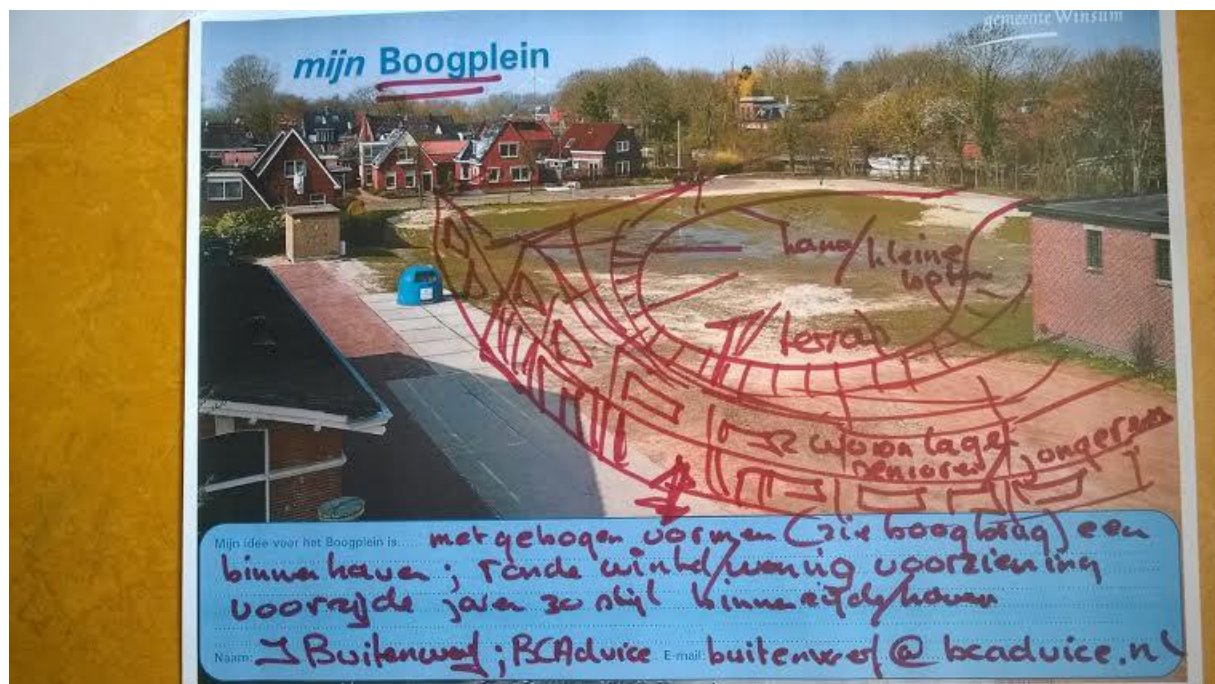 gemeente Winsum
mijn Boogplein
haven/kleine
terras
2 woonlagen jongeren
senioren
Mijn idee voor het Boogplein is... met gebogen vormen (zie boogbrug) een
binnenhaven; ronde winkel/woning voorziening
voorzijde jaren 30 stijl binnenzijde/haven
Naam: J Buitenwerf; BCAdvice E-mail: buitenwerf@bcadvice.nl